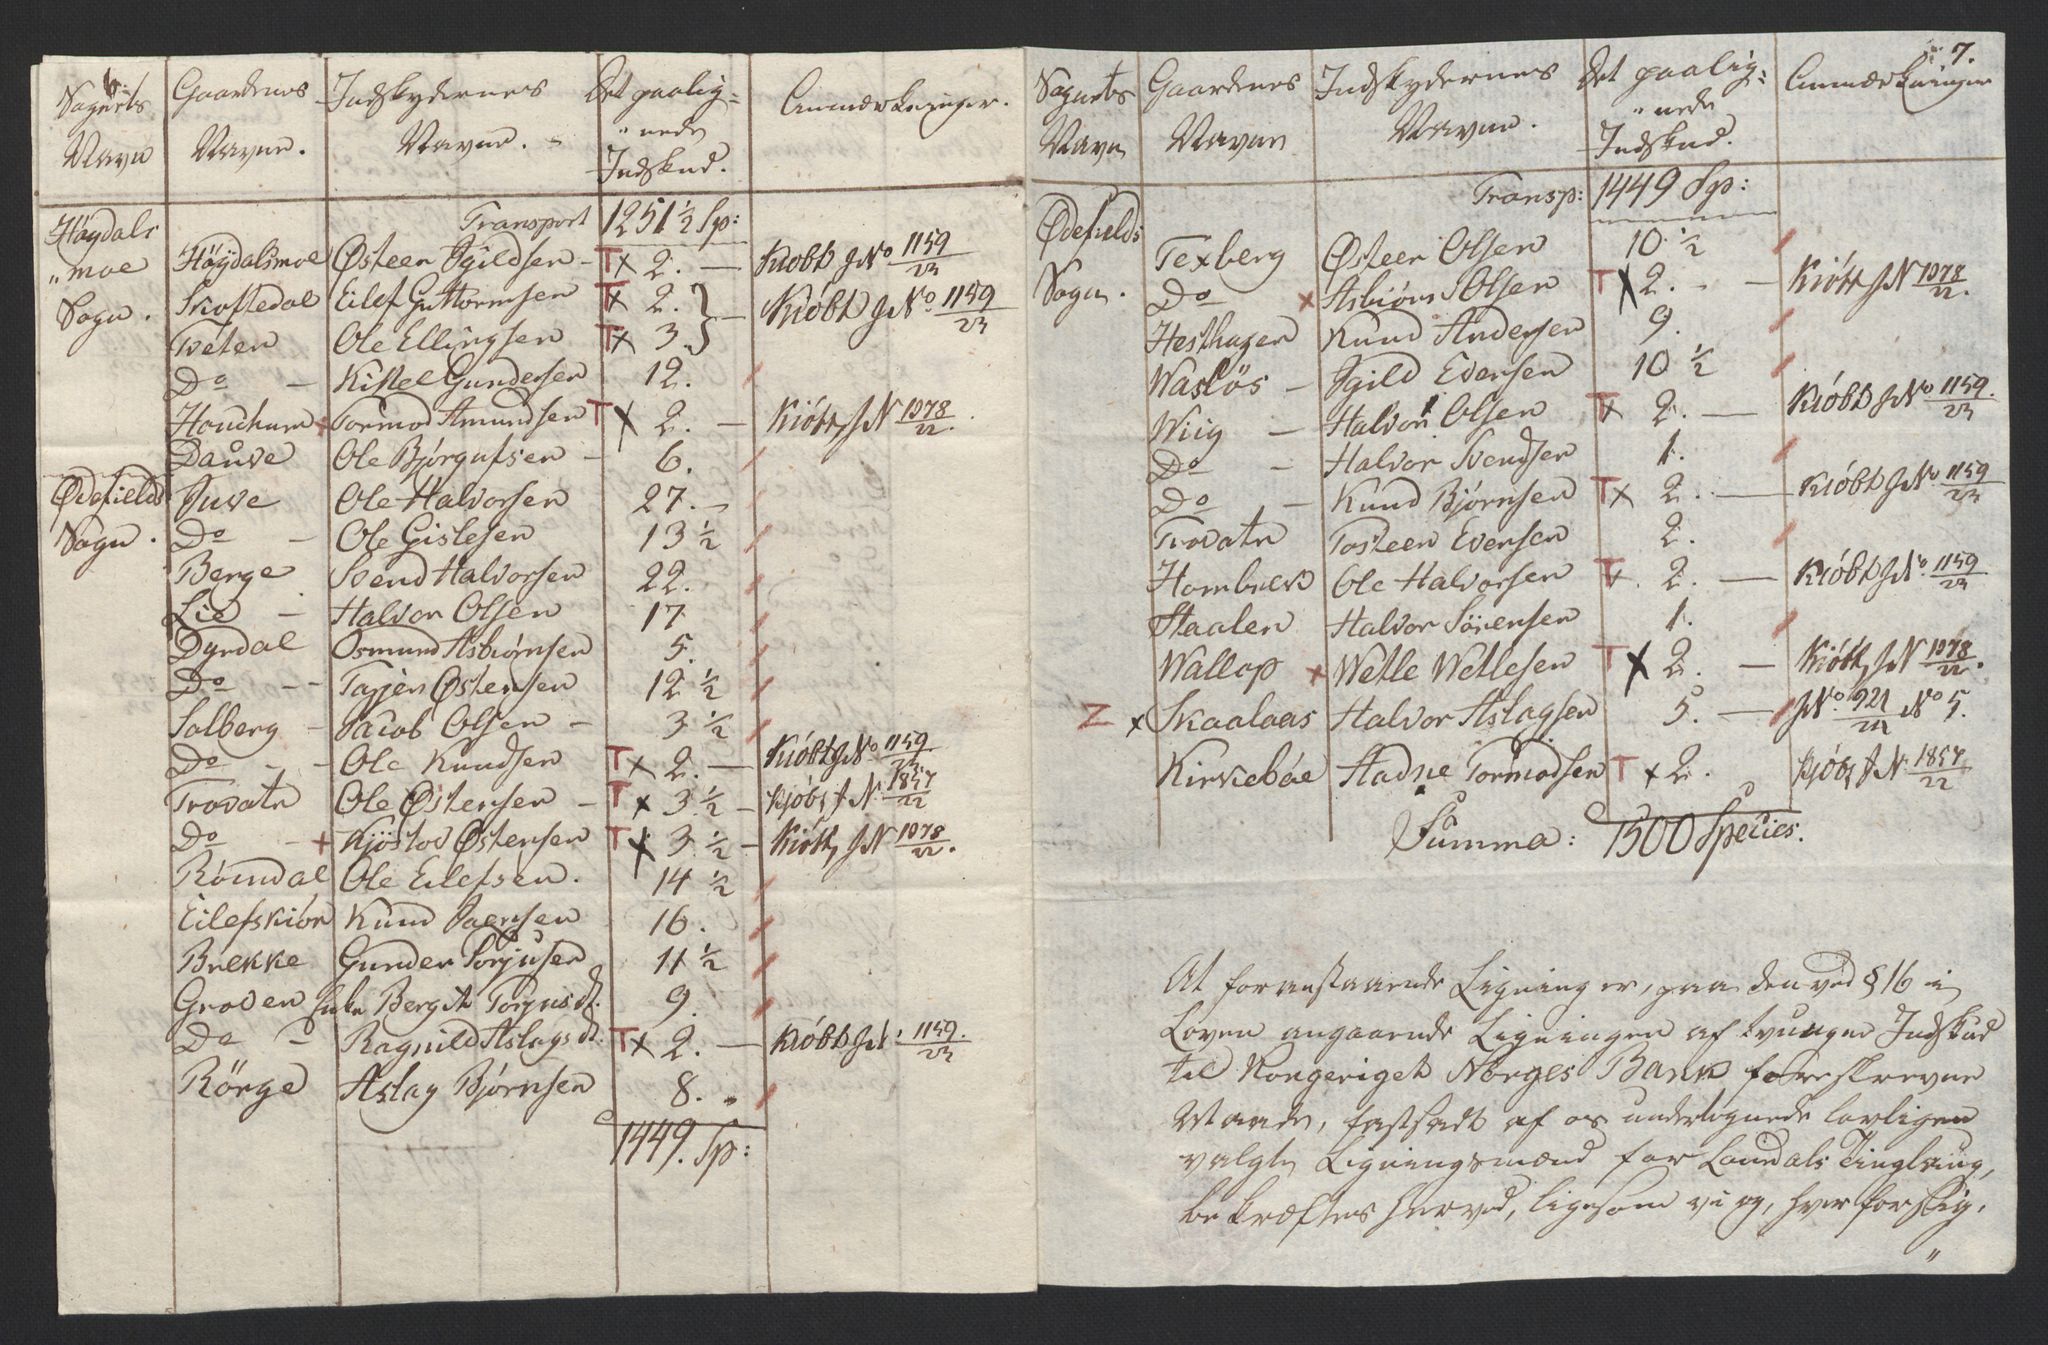 Sognets Gaardenes Indskydernes Det paalig= Anmærkninger.
Navn Navne. Navne. "nede
Indskud.
Transport 1251½ Sp:
Høydals
"moe Høydalsmoe Østeen Igildsen - T x 2. — Kiøbt J No 1159/23
Sogn. Skoftedal Eilef Guttormsen T x 2. } — Kiøbt J No 1159/23
Tveten Ole Ellingsen T x 3 }
Do — Kittel Gundersen 12.
Honchum x Tormod Amundsen T x 2. — Kiøtt, J N 1078/22.
Dauve Ole Bjørgufsen — 6.
Ødefields Juve Ole Halvorsen 27. —
Sogn. Do — Ole Gislesen 13½
Berge Svend Halvorsen 22.
Lie — Halvor Olsen 17.
Dyrdal Osmund Asbiørnsen 5.
Do — — Tarjer Østensen 12½
Solberg — Jacob Olsen — 3½
Do — — Ole Knudsen T x 2. — Kiøbt J No 1159/23
Trovatn Ole Østensen — T x 3½ — Kjøbt J N. 1857/22
Do — x Kjøstov Østensen T x 3½ — Kiøtt, J N 1078/22.
Rømdal Ole Eilefsen. 14½
Eilefskiør Knud Jaensen 16.
Brekke Gunder Torjusen 11½
Groven Enke Bergit Torjusdt. 9.
Do — Ragnild Aslagsdt: T x 2. — Kiøbt J N: 1159./23
Rörge Aslag Bjørnsen 8.
1449. Sp:
7.
Sognets Gaardenes Indskydernes Det paalig= Anmærkninger
Navn Navne Navne. "nede
Indskud.
Transp: 1449 Sp:
Ødefields Texberg Østeen Olsen 10½
Sogn. Do x Asbiørn Olsen T x 2. — Kiøtt J N 1078/22.
Hesthagen Knud Andersen 9.
Wasløs — Igild Evensen 10½
Wiig — Halvor Olsen T x 2. — Kiøbt J No 1159./23
Do — Halvor Svendsen 1.
Do — Knud Bjørnsen T x 2. — Kiøbt J No 1159/23
Trovatn Tosteen Evensen 2.
Hornbuck Ole Halvorsen T x 2. — Kiøbt J N. 1159/23
Staalen Halvor Sörensen 1.
Wallop x Wetle Wetlesen T x 2. — Kiøtt, J N 1078/22.
Z x Skaalaas Halvor Aslagsen 5. — J No 921/22 No 5.
Kirkebøe Stadne Tormodsen T x 2. Kjøbt J N. 1857/22
Summa: 1500 Species.
At foranstaaende Ligning er, paa den ved § 16 i
Loven angaaende Ligningen af tvungne Indskud
til Kongeriget Norges Bank foreskrevne
Maade, fastsadt af os undertegnede lovligen
valgte Ligningsmænd for Laurdals Tinglaug,
bekræftes herved, ligesom vi og, hver for sig,
"